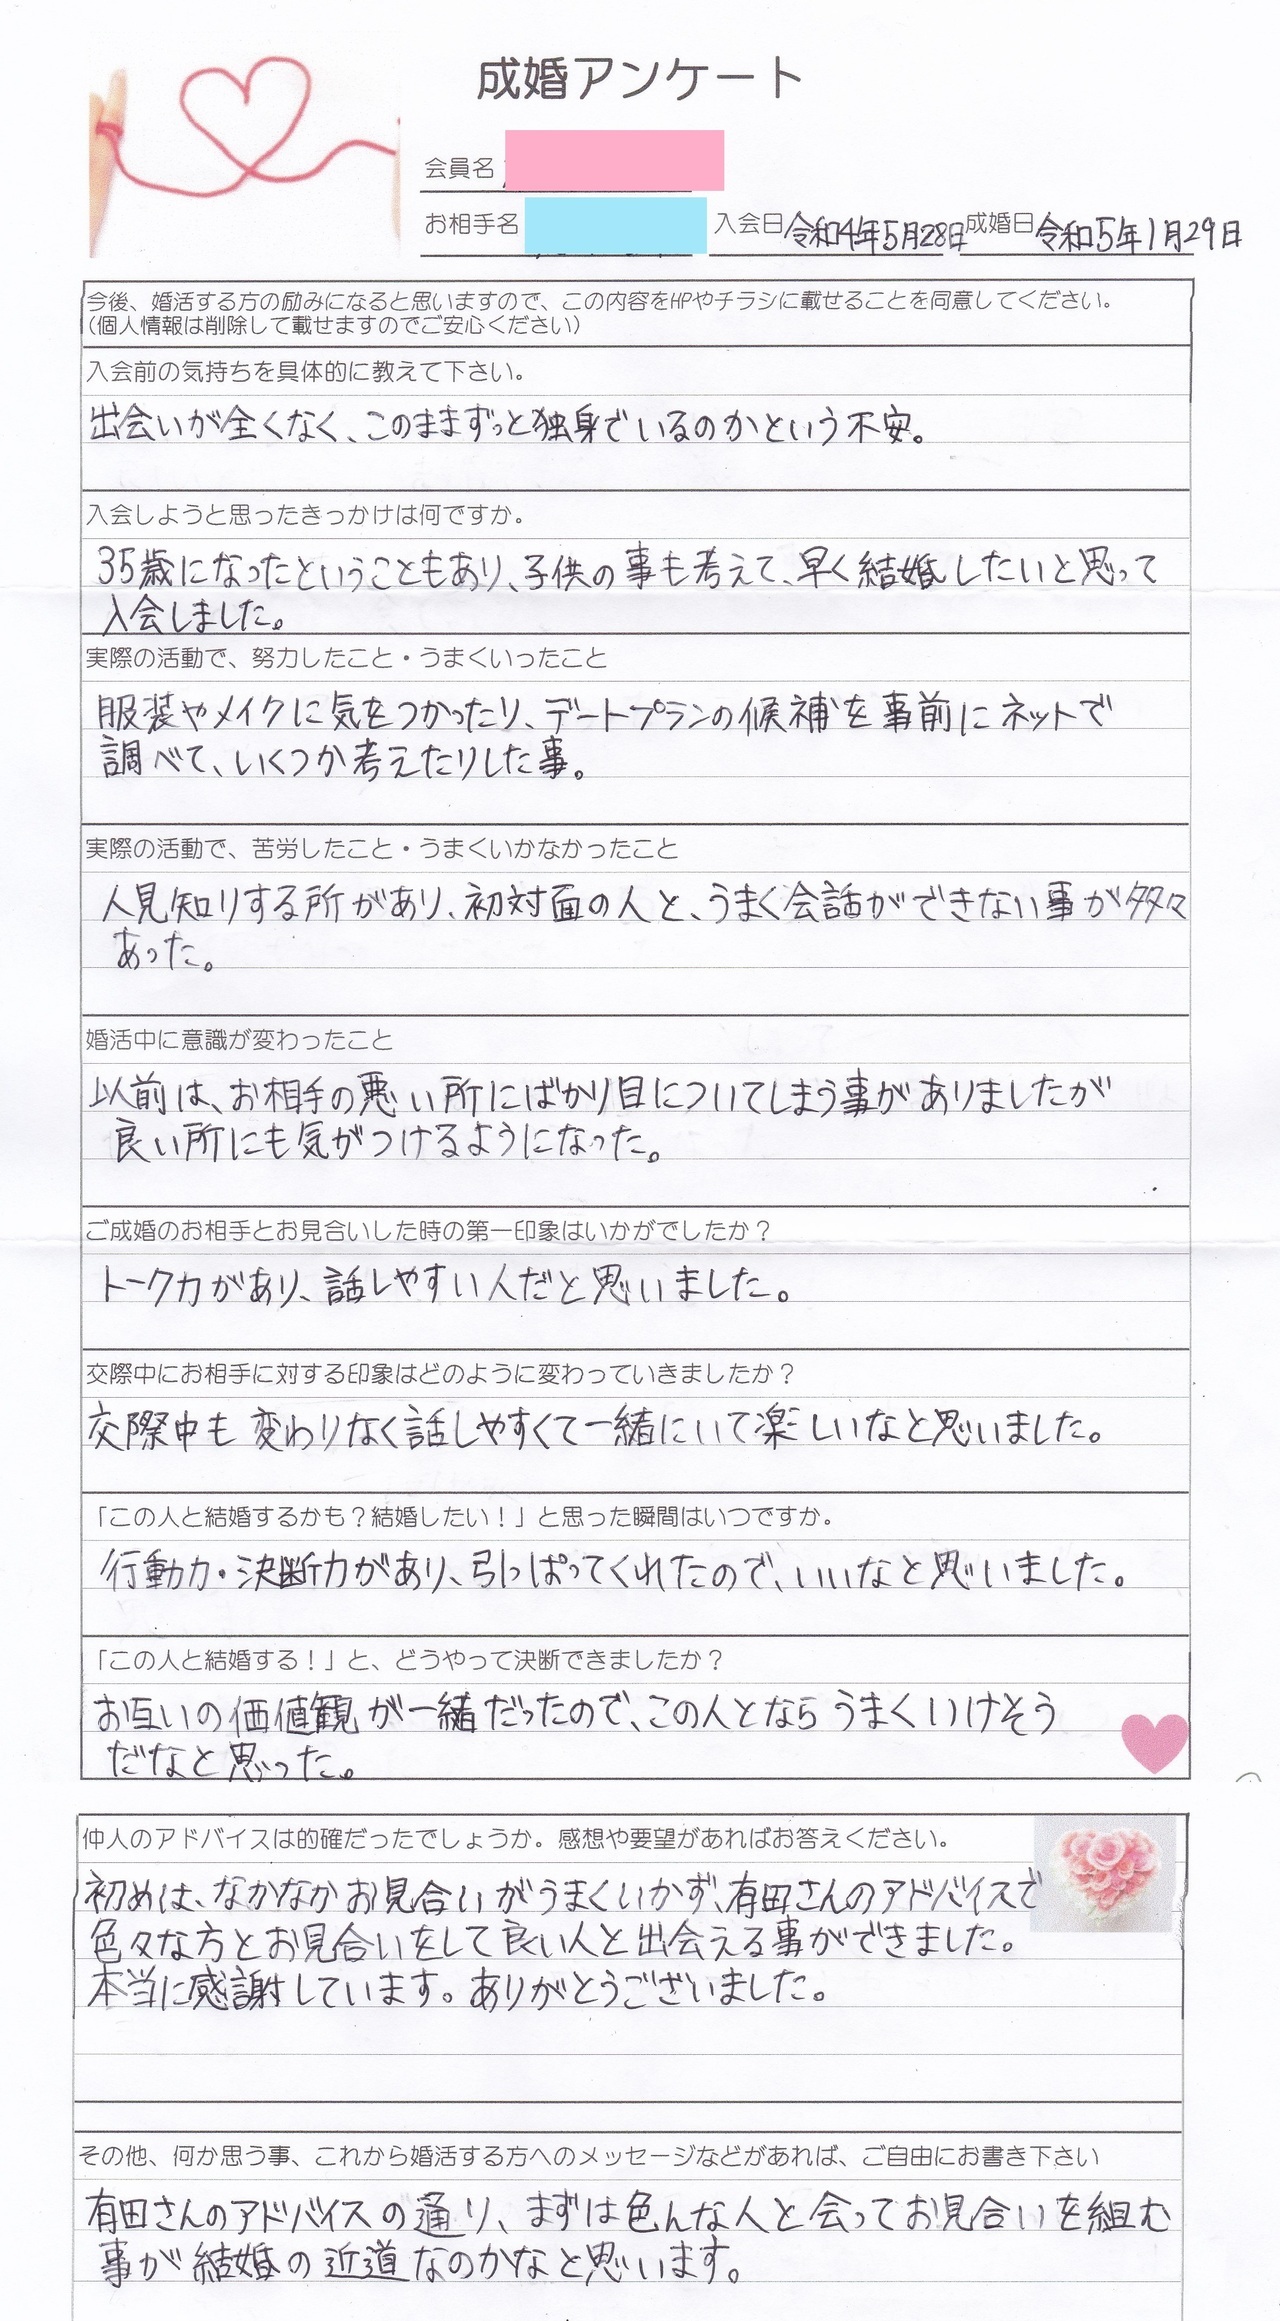 成婚アンケート
会員名
お相手名 入会日 令和4年5月28日 成婚日 令和5年1月29日
今後、婚活する方の励みになると思いますので、この内容をHPやチラシに載せることを同意してください。
（個人情報は削除して載せますのでご安心ください）
入会前の気持ちを具体的に教えて下さい。
出会いが全くなく、このままずっと独身でいるのかという不安。
入会しようと思ったきっかけは何ですか。
35歳になったということもあり、子供の事も考えて、早く結婚したいと思って
入会しました。
実際の活動で、努力したこと・うまくいったこと
服装やメイクに気をつかったり、デートプランの候補を事前にネットで
調べて、いくつか考えたりした事。
実際の活動で、苦労したこと・うまくいかなかったこと
人見知りする所があり、初対面の人と、うまく会話ができない事が多々
あった。
婚活中に意識が変わったこと
以前は、お相手の悪い所にばかり目についてしまう事がありましたが
良い所にも気がつけるようになった。
ご成婚のお相手とお見合いした時の第一印象はいかがでしたか？
トーク力があり、話しやすい人だと思いました。
交際中にお相手に対する印象はどのように変わっていきましたか？
交際中も変わりなく話しやすくて一緒にいて楽しいなと思いました。
「この人と結婚するかも？結婚したい！」と思った瞬間はいつですか。
行動力・決断力があり、引っぱってくれたので、いいなと思いました。
「この人と結婚する！」と、どうやって決断できましたか？
お互いの価値観が一緒だったので、この人とならうまくいけそう
だなと思った。
仲人のアドバイスは的確だったでしょうか。感想や要望があればお答えください。
初めは、なかなかお見合いがうまくいかず、有田さんのアドバイスで
色々な方とお見合いをして良い人と出会える事ができました。
本当に感謝しています。ありがとうございました。
その他、何か思う事、これから婚活する方へのメッセージなどがあれば、ご自由にお書き下さい
有田さんのアドバイスの通り、まずは色んな人と会ってお見合いを組む
事が結婚の近道なのかなと思います。